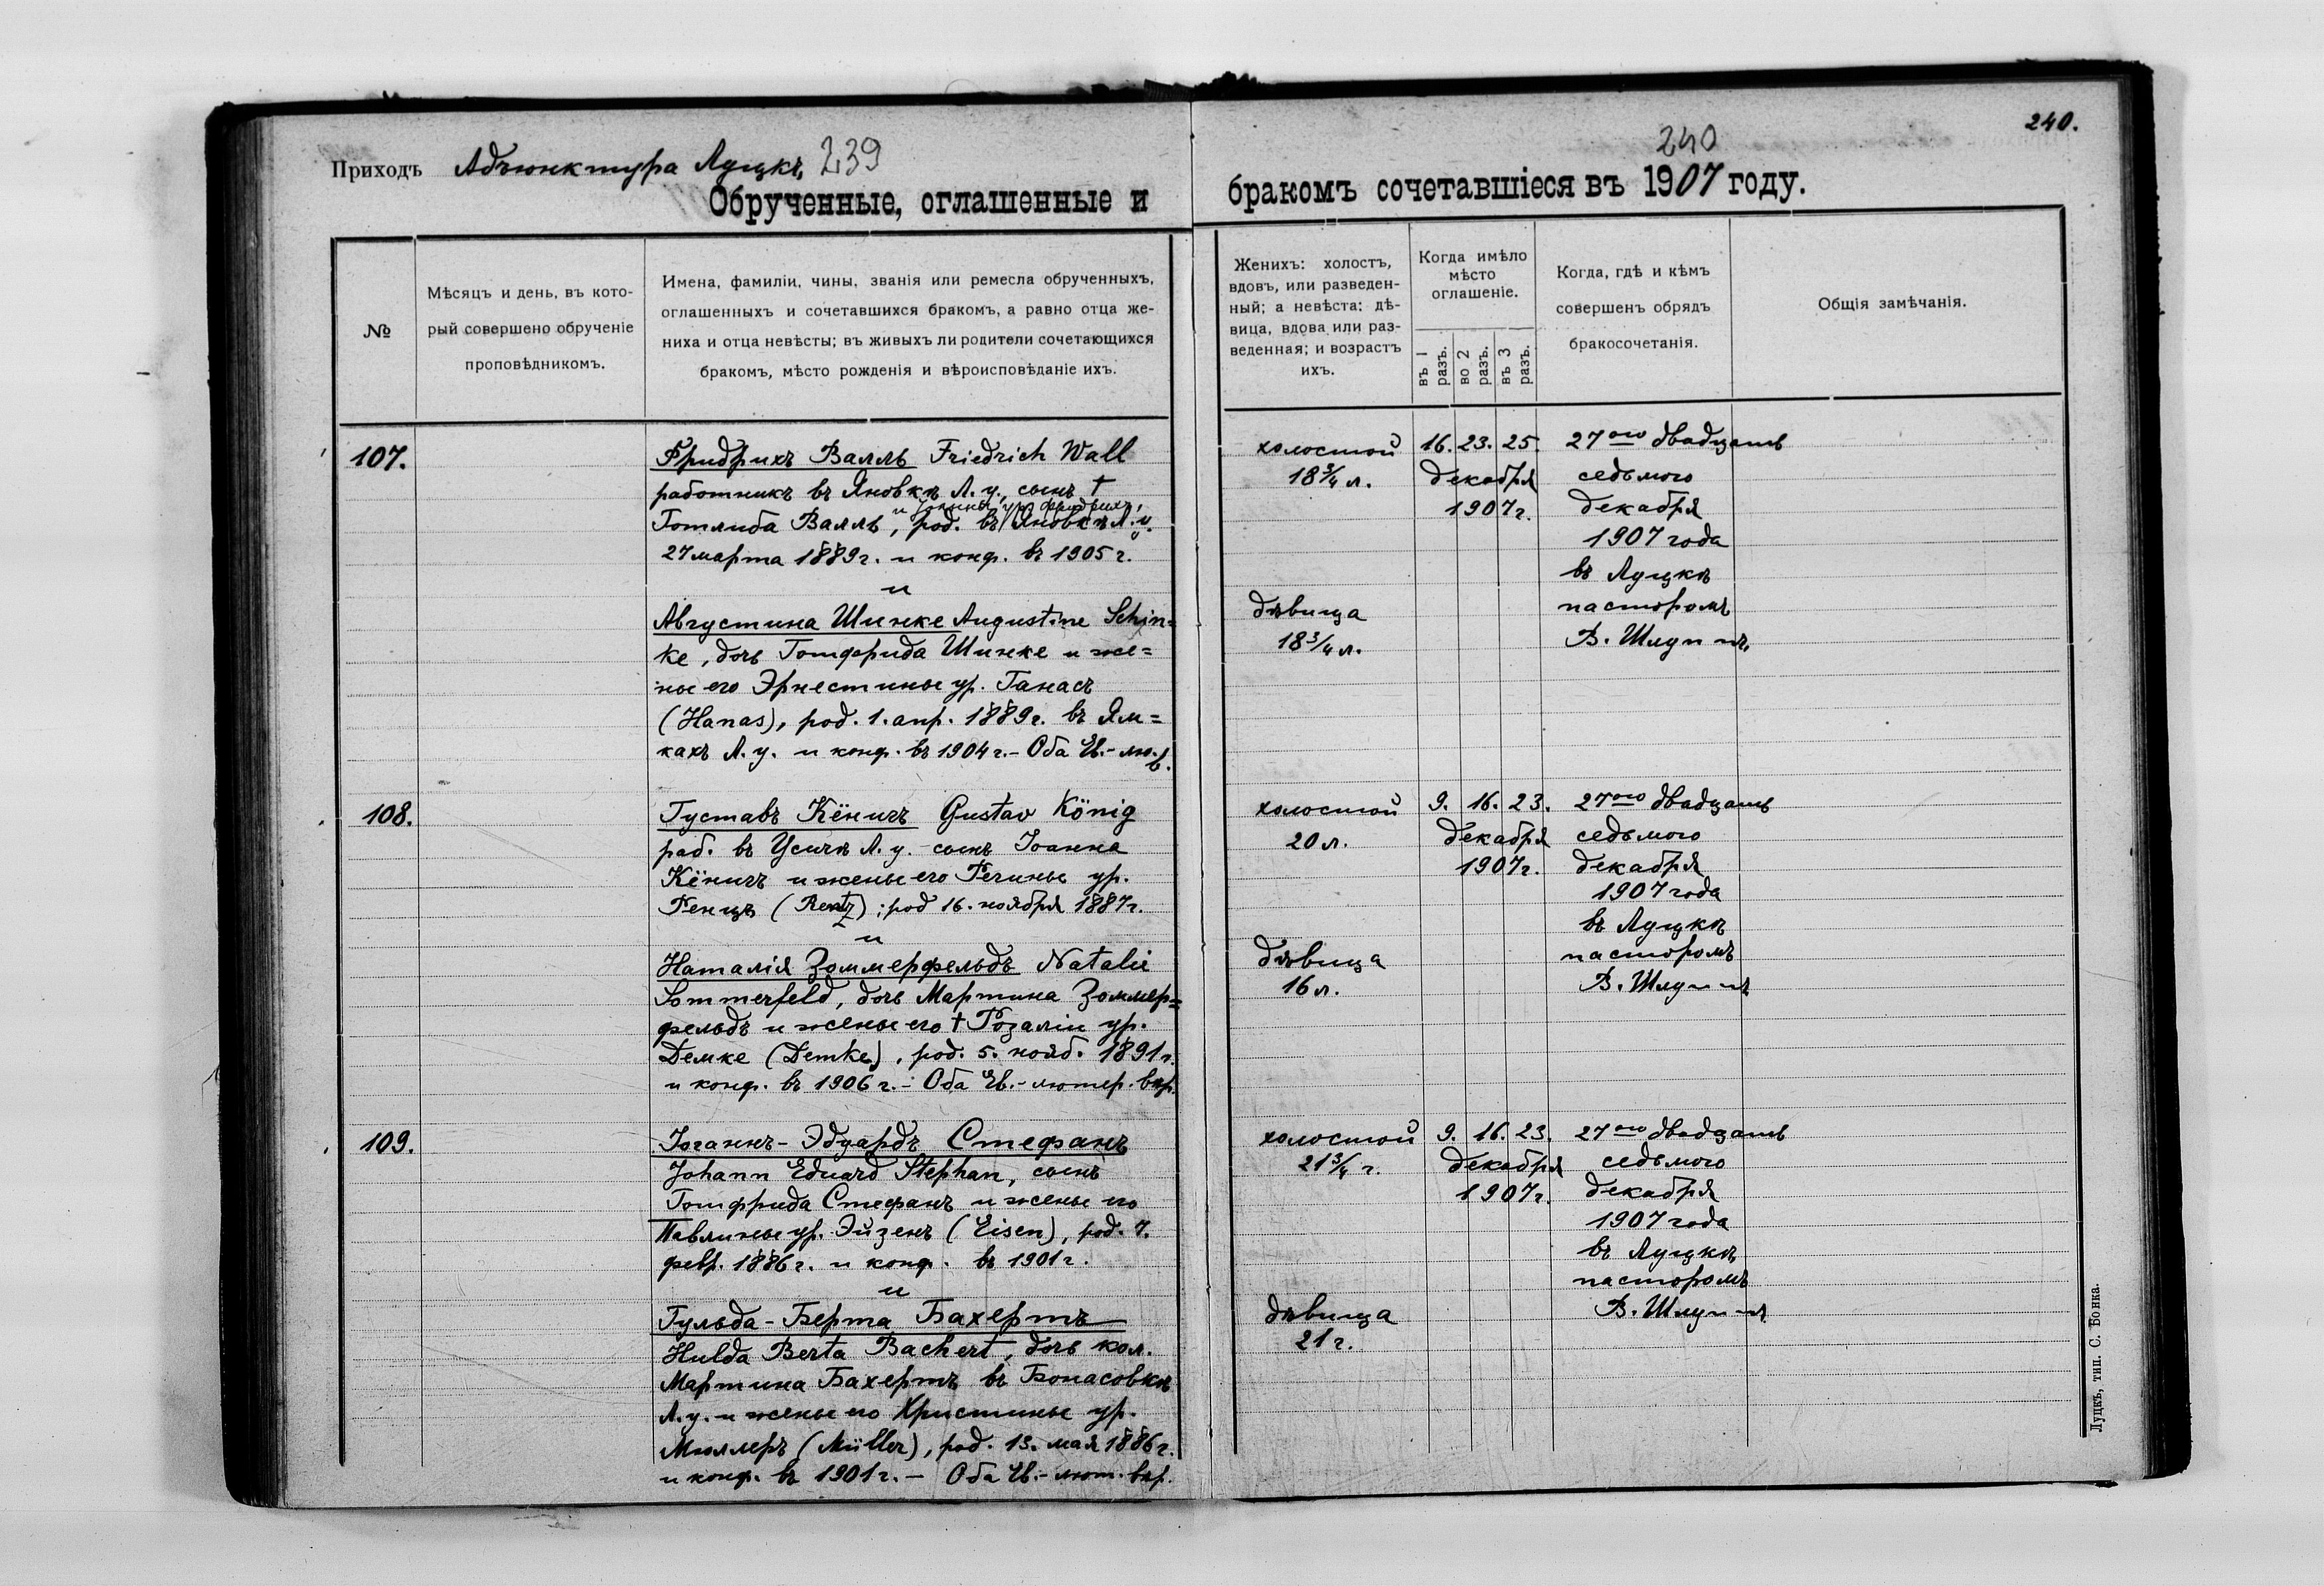 240.
Приходъ Адъюнктура Луцкъ, 239
240
Обрученные, оглашенные и
бракомъ сочетавшіеся въ 1907 году.
№
Мѣсяцъ и день, въ кото-
рый совершено обрученіе
проповѣдникомъ.
Имена, фамиліи, чины, званія или ремесла обрученныхъ,
оглашенныхъ и сочетавшихся бракомъ, а равно отца же-
ниха и отца невѣсты; въ живыхъ ли родители сочетающихся
бракомъ, мѣсто рожденія и вѣроисповѣданіе ихъ.
Женихъ: холостъ,
вдовъ, или разведен-
ный; а невѣста: дѣ-
вица, вдова или раз-
веденная; и возрастъ
ихъ.
Когда имѣло
мѣсто
оглашеніе.
въ 1
разъ.
во 2
разъ.
въ 3
разъ.
Когда, гдѣ и кѣмъ
совершенъ обрядъ
бракосочетанія.
Общія замѣчанія.
107.
Фридрихъ Валль Friedrich Wall
работникъ въ Яновкѣ Л. у., сынъ †
Готлиба Валль, род. въ Яновкѣ Л. у.
27 марта 1889 г. и конф. въ 1905 г.
и
Августина Шинке Augustine Schin=
ke, дочь Готфрида Шинке и же=
ны его Эрнестины ур. Ганасъ
(Hanas), род. 1. апр. 1889 г. въ Ям=
кахъ Л. у. и конф. въ 1904 г. - Оба Ев.-лют.
холостой
18 3/4 л.
дѣвица
18 3/4 л.
16. 23. 25.
декабря
1907 г.
27ого двадцать
седьмого
декабря
1907 года
въ Луцкѣ
пасторомъ
В. Шлуппъ,
108.
Густавъ Кёнигъ Gustav König
раб. въ Усичѣ Л. у. сынъ Іоанна
Кёнигъ и жены его Регины ур.
Ренцъ (Rentz); род 16. ноября 1887 г.
и
Наталія Зоммерфельдъ Natalie
Sommerfeld, дочь Мартина Зоммер=
фельдъ и жены его † Розаліи ур.
Демке (Demke), род. 5. нояб. 1891 г.
и конф. въ 1906 г. - Оба Ев.-лютер. вѣр.
холостой
20 л.
дѣвица
16 л.
9. 16. 23.
декабря
1907 г.
27ого двадцать
седьмого
декабря
1907 года
въ Луцкѣ
пасторомъ
В. Шлуппъ
109.
Іоганнъ-Эдуардъ Стефанъ
Johann Eduard Stephan, сынъ
Готфрида Стефанъ и жены его
Павлины ур. Эйзенъ (Eisen), род. 7.
февр. 1886 г. и конф. въ 1901 г.
и
Гульда-Берта Бахертъ
Hulda Berta Bachert, дочь кол.
Мартина Бахертъ въ Бонасовкѣ
Л. у. и жены его Христины ур.
Мюллеръ (Müller), род. 13. мая 1886 г.
и конф. въ 1901 г. - Оба Ев.-лют. вѣр.
холостой
21 3/4 г.
дѣвица
21 г.
9. 16. 23.
декабря
1907 г.
27ого двадцать
седьмого
декабря
1907 года
въ Луцкѣ
пасторомъ
В. Шлуппъ
Луцкъ, тип. С. Бонка.